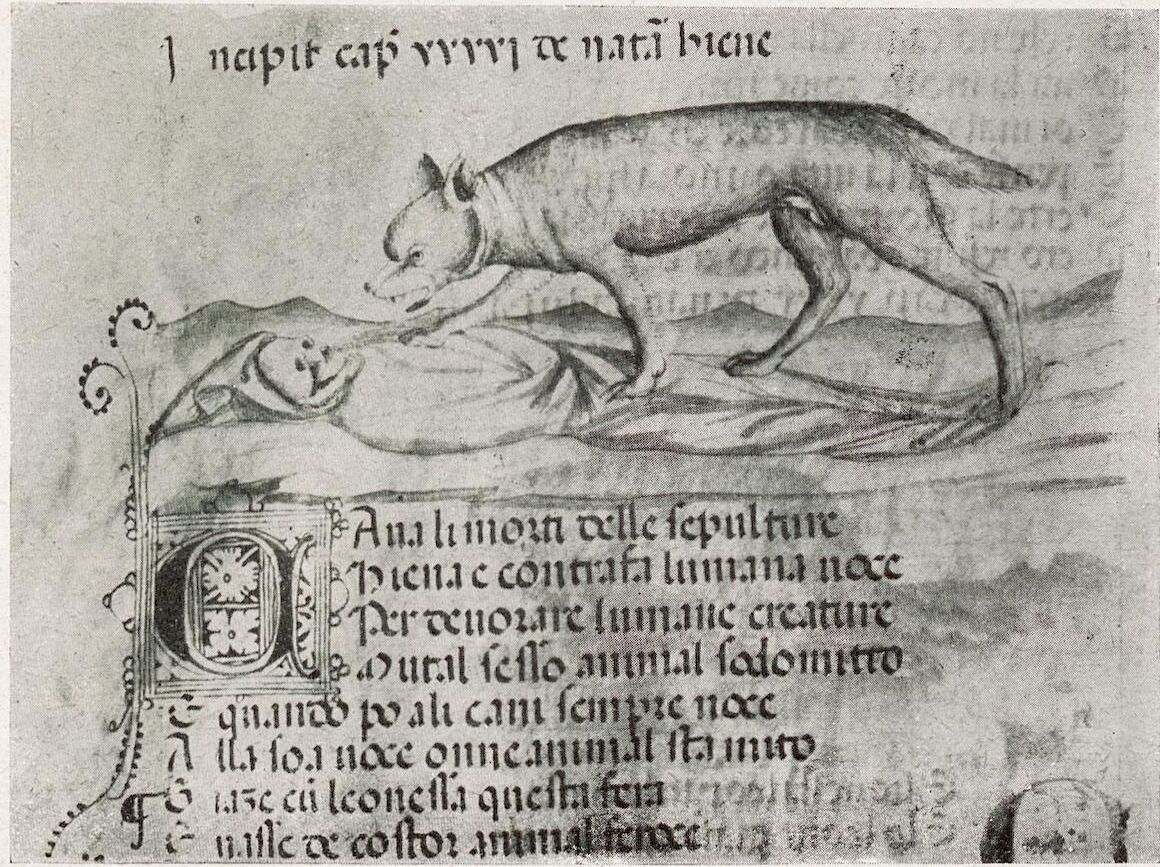 Incipit cap̃ xxxxj de natã hiene
CAua li morti delle sepulture
Hiena e contrafa lumana uoce
Per deuorare lumane creature
Mutal sesso animal sodomitto
E quando po ali cani sempre noce
A lla soa uoce onne animal sta muto
¶ E iaze cũ leonessa questa fera
E nasse de costor animal feroce